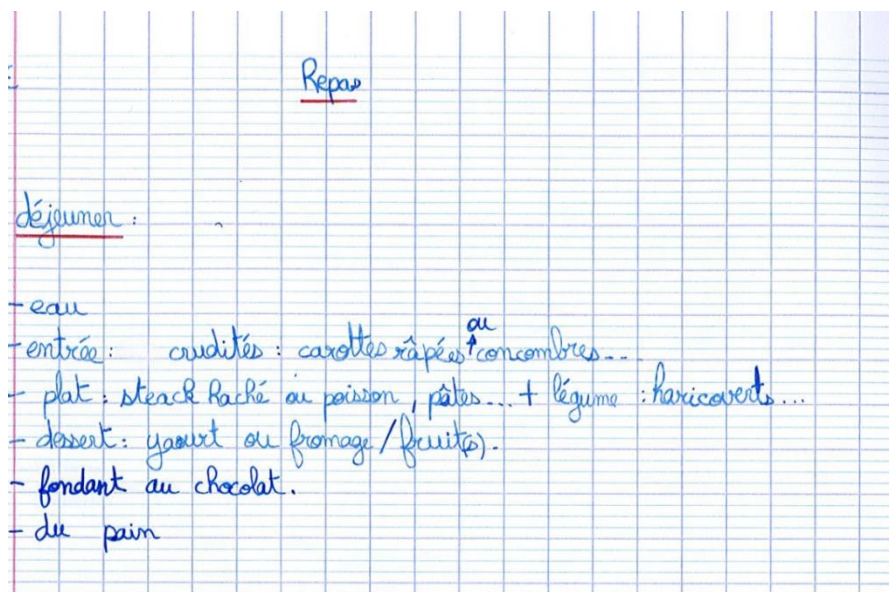 Repas
déjeuner :
- eau
- entrée : crudités : carottes râpées ou concombres...
- plat : steack haché ou poisson, pâtes... + légume : haricoverts...
- dessert : yaourt ou fromage / fruit(s).
- fondant au chocolat.
- du pain